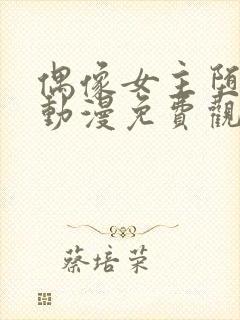 偶像女主堕
動漫免費觀
蔡培荣